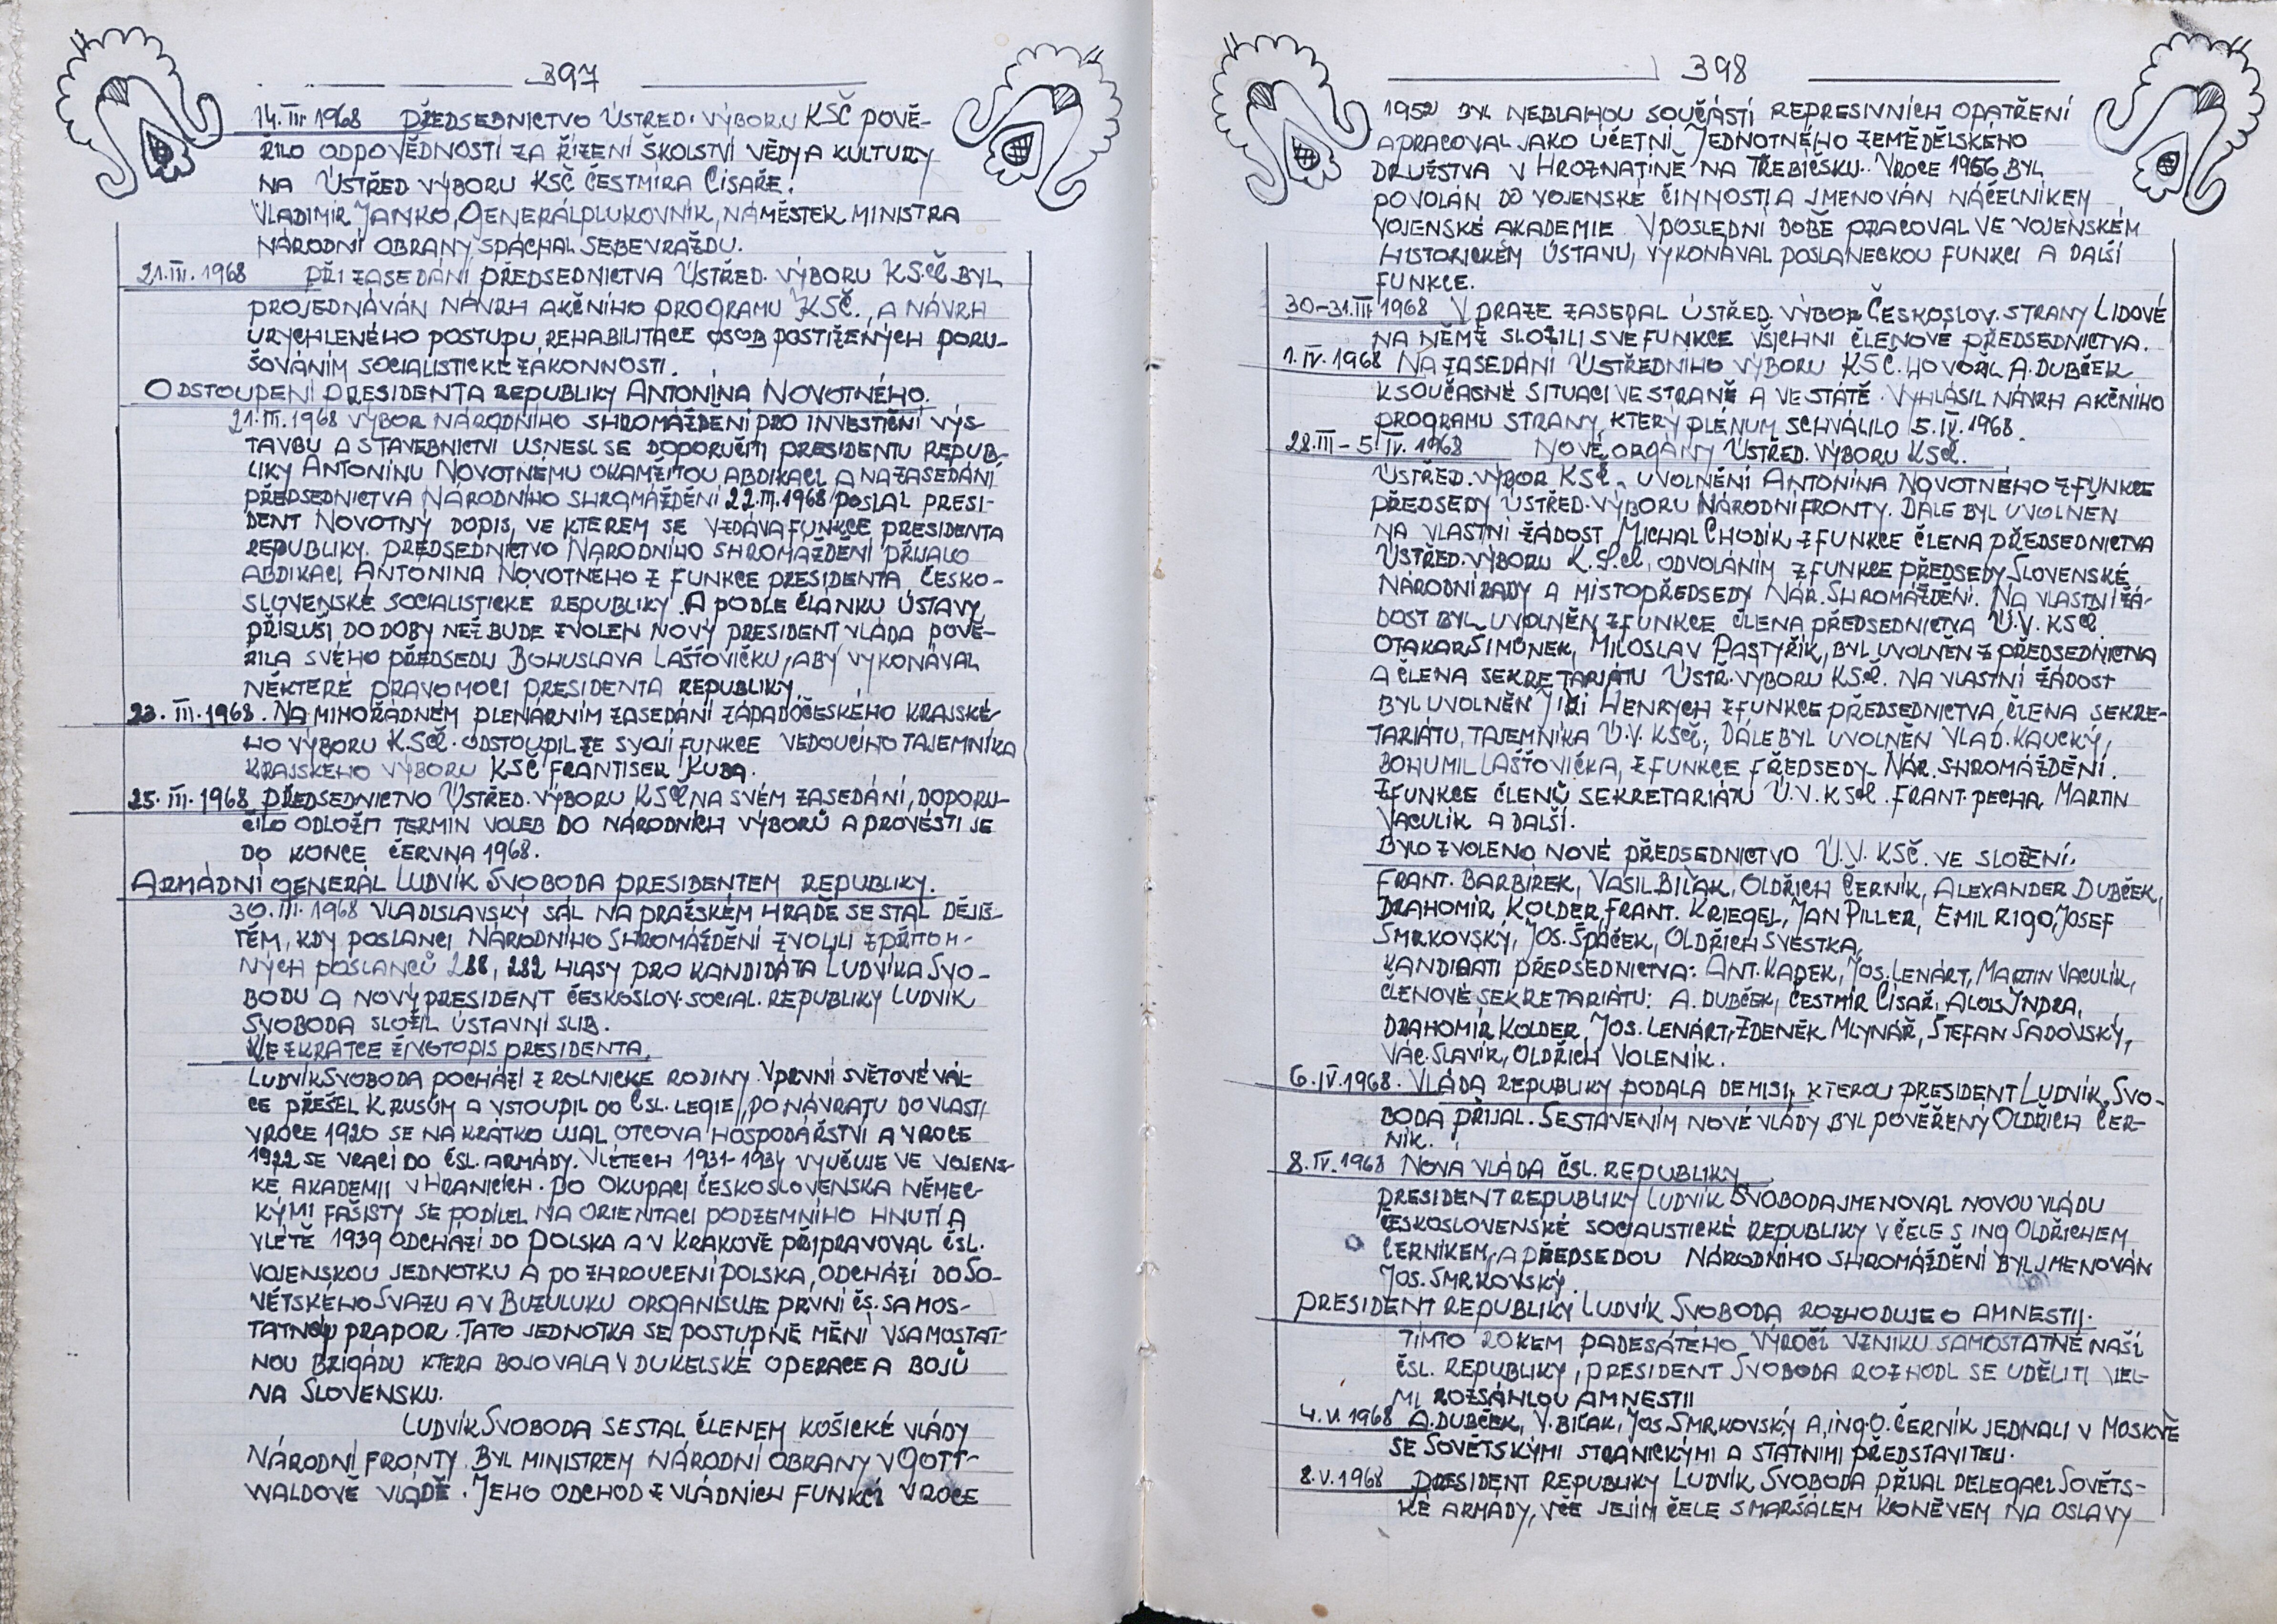 397
14. III. 1968 PŘEDSEDNICTVO ÚSTŘED. VÝBORU KSČ POVĚ-
ŘILO ODPOVĚDNOSTÍ ZA ŘÍZENÍ ŠKOLSTVÍ VĚDY A KULTURY
NA ÚSTŘED VÝBORU KSČ ČESTMÍRA CÍSAŘE.
VLADIMÍR JANKO, GENERÁLPLUKOVNÍK, NÁMĚSTEK MINISTRA
NÁRODNÍ OBRANY SPÁCHAL SEBEVRAŽDU.
21. III. 1968 PŘI ZASEDÁNÍ PŘEDSEDNICTVA ÚSTŘED. VÝBORU KSČ BYL
PROJEDNÁVÁN NÁVRH AKČNÍHO PROGRAMU KSČ., A NÁVRH
URYCHLENÉHO POSTUPU REHABILITACE OSOB POSTIŽENÝCH PORU-
ŠOVÁNÍM SOCIALISTICKÉ ZÁKONNOSTI.
ODSTOUPENÍ PRESIDENTA REPUBLIKY ANTONÍNA NOVOTNÉHO.
21. III. 1968 VÝBOR NÁRODNÍHO SHROMÁŽDĚNÍ PRO INVESTIČNÍ VÝS-
TAVBU A STAVEBNICTVÍ USNESL SE DOPORUČITI PRESIDENTU REPUB-
LIKY ANTONÍNU NOVOTNÉMU OKAMŽITOU ABDIKACI A NA ZASEDÁNÍ
PŘEDSEDNICTVA NÁRODNÍHO SHROMÁŽDĚNÍ 22. III. 1968 POSLAL PRESI-
DENT NOVOTNÝ DOPIS, VE KTERÉM SE VZDÁVÁ FUNKCE PRESIDENTA
REPUBLIKY. PŘEDSEDNICTVO NÁRODNÍHO SHROMÁŽDĚNÍ PŘIJALO
ABDIKACI ANTONÍNA NOVOTNÉHO Z FUNKCE PRESIDENTA ČESKO-
SLOVENSKÉ SOCIALISTICKÉ REPUBLIKY. A PODLE ČLÁNKU ÚSTAVY
PŘÍSLUŠÍ, DO DOBY NEŽ BUDE ZVOLEN NOVÝ PRESIDENT VLÁDA POVĚ-
ŘILA SVÉHO PŘEDSEDU BOHUSLAVA LAŠŤOVIČKU, ABY VYKONÁVAL
NĚKTERÉ PRAVOMOCI PRESIDENTA REPUBLIKY.
23. III. 1968. NA MIMOŘÁDNÉM PLENÁRNÍM ZASEDÁNÍ ZÁPADOČESKÉHO KRAJSKÉ-
HO VÝBORU K.SČ. ODSTOUPIL ZE SVOJÍ FUNKCE VEDOUCÍHO TAJEMNÍKA
KRAJSKÉHO VÝBORU KSČ FRANTIŠEK KUBA.
25. III. 1968 PŘEDSEDNICTVO ÚSTŘED. VÝBORU KSČ NA SVÉM ZASEDÁNÍ, DOPORU-
ČILO ODLOŽIT TERMÍN VOLEB DO NÁRODNÍCH VÝBORŮ A PROVÉSTI JE
DO KONCE ČERVNA 1968.
ARMÁDNÍ GENERÁL LUDVÍK SVOBODA PRESIDENTEM REPUBLIKY.
30. III. 1968 VLADISLAVSKÝ SÁL NA PRAŽSKÉM HRADĚ SE STAL DĚJIŠ-
TĚM, KDY POSLANCI NÁRODNÍHO SHROMÁŽDĚNÍ ZVOLILI Z PŘÍTOM-
NÝCH POSLANCŮ 288, 282 HLASY PRO KANDIDÁTA LUDVÍKA SVO-
BODU A NOVÝ PRESIDENT ČESKOSLOV. SOCIAL. REPUBLIKY LUDVÍK
SVOBODA SLOŽIL ÚSTAVNÍ SLIB.
VE ZKRATCE ŽIVOTOPIS PRESIDENTA.
LUDVÍK SVOBODA POCHÁZÍ Z ROLNICKÉ RODINY. V PRVNÍ SVĚTOVÉ VÁL-
CE PŘEŠEL K RUSŮM A VSTOUPIL DO ČSL. LEGIE, PO NÁVRATU DO VLASTI
V ROCE 1920 SE NA KRÁTKO UJAL OTCOVA HOSPODÁŘSTVÍ A V ROCE
1922 SE VRACÍ DO ČSL. ARMÁDY. V LETECH 1931-1934 VYUČUJE VE VOJENS-
KÉ AKADEMII V HRANICÍCH. PO OKUPACI ČESKOSLOVENSKA NĚMEC-
KÝMI FAŠISTY SE PODÍLEL NA ORIENTACI PODZEMNÍHO HNUTÍ A
V LÉTĚ 1939 ODCHÁZÍ DO POLSKA A V KRAKOVĚ PŘIPRAVOVAL ČSL.
VOJENSKOU JEDNOTKU A PO ZHROUCENÍ POLSKA, ODCHÁZÍ DO SO-
VĚTSKÉHO SVAZU A V BUZULUKU ORGANISUJE PRVNÍ ČS. SAMOS-
TATNOU PRAPOR. TATO JEDNOTKA SE POSTUPNĚ MĚNÍ V SAMOSTAT-
NOU BRIGÁDU KTERÁ BOJOVALA V DUKELSKÉ OPERACE A BOJŮ
NA SLOVENSKU.
LUDVÍK SVOBODA SE STAL ČLENEM KOŠICKÉ VLÁDY
NÁRODNÍ FRONTY BYL MINISTREM NÁRODNÍ OBRANY V GOTT-
WALDOVĚ VLÁDĚ. JEHO ODCHOD Z VLÁDNÍCH FUNKCÍ V ROCE
398
1952 BYL NEBLAHOU SOUČÁSTÍ REPRESIVNÍCH OPATŘENÍ
A PRACOVAL JAKO ÚČETNÍ JEDNOTNÉHO ZEMĚDĚLSKÉHO
DRUŽSTVA V HROZNATÍNĚ NA TŘEBÍČSKU. V ROCE 1956 BYL
POVOLÁN DO VOJENSKÉ ČINNOSTI A JMENOVÁN NÁČELNÍKEM
VOJENSKÉ AKADEMIE. V POSLEDNÍ DOBĚ PRACOVAL VE VOJENSKÉM
HISTORICKÉM ÚSTAVU, VYKONÁVAL POSLANECKOU FUNKCI A DALŠÍ
FUNKCE.
30-31. III. 1968 V PRAZE ZASEDAL ÚSTŘED. VÝBOR ČESKOSLOV. STRANY LIDOVÉ
NA NĚMŽ SLOŽILI SVÉ FUNKCE VŠICHNI ČLENOVÉ PŘEDSEDNICTVA.
1. IV. 1968 NA ZASEDÁNÍ ÚSTŘEDNÍHO VÝBORU KSČ. HOVOŘIL A. DUBČEK
K SOUČASNÉ SITUACI VE STRANĚ A VE STÁTĚ. VYHLÁSIL NÁVRH AKČNÍHO
PROGRAMU STRANY, KTERÝ PLÉNUM SCHVÁLILO 5. IV. 1968.
28. III - 5. IV. 1968 NOVÉ ORGÁNY ÚSTŘED. VÝBORU KSČ.
ÚSTŘED. VÝBOR KSČ. UVOLNĚNÍ ANTONÍNA NOVOTNÉHO Z FUNKCE
PŘEDSEDY ÚSTŘED. VÝBORU NÁRODNÍ FRONTY. DÁLE BYL UVOLNĚN
NA VLASTNÍ ŽÁDOST MICHAL CHODÍK, Z FUNKCE ČLENA PŘEDSEDNICTVA
ÚSTŘED. VÝBORU K.S.Č, ODVOLÁNÍM Z FUNKCE PŘEDSEDY SLOVENSKÉ
NÁRODNÍ RADY A MÍSTOPŘEDSEDY NÁR. SHROMÁŽDĚNÍ. NA VLASTNÍ ŽÁ-
DOST BYL UVOLNĚN Z FUNKCE ČLENA PŘEDSEDNICTVA Ú.V. KSČ.
OTAKAR ŠIMŮNEK, MILOSLAV PASTYŘÍK, BYL UVOLNĚN Z PŘEDSEDNICTVA
A ČLENA SEKRETARIÁTU ÚSTŘ. VÝBORU KSČ. NA VLASTNÍ ŽÁDOST
BYL UVOLNĚN JIŘÍ HENRYCH Z FUNKCE PŘEDSEDNICTVA, ČLENA SEKRE-
TARIÁTU, TAJEMNÍKA Ú.V. KSČ., DÁLE BYL UVOLNĚN VLAD. KAUCKÝ,
BOHUMIL LAŠŤOVIČKA, Z FUNKCE PŘEDSEDY NÁR. SHROMÁŽDĚNÍ.
Z FUNKCE ČLENŮ SEKRETARIÁTU Ú.V. KSČ. FRANT. PECHA, MARTIN
VACULÍK A DALŠÍ.
BYLO ZVOLENO NOVÉ PŘEDSEDNICTVO Ú.V. KSČ. VE SLOŽENÍ.
FRANT. BARBÍREK, VASIL BIĽAK, OLDŘICH ČERNÍK, ALEXANDER DUBČEK,
DRAHOMÍR KOLDER, FRANT. KRIEGEL, JAN PILLER, EMIL RIGO, JOSEF
SMRKOVSKÝ, JOS. ŠPAČEK, OLDŘICH ŠVESTKA,
KANDIDÁTI PŘEDSEDNICTVA: ANT. KAPEK, JOS. LENÁRT, MARTIN VACULÍK,
ČLENOVÉ SEKRETARIÁTU: A. DUBČEK, ČESTMÍR CÍSAŘ, ALOIS INDRA,
DRAHOMÍR KOLDER, JOS. LENÁRT, ZDENĚK MLYNÁŘ, ŠTEFAN SADOVSKÝ,
VÁC. SLAVÍK, OLDŘICH VOLENÍK.
6. IV. 1968. VLÁDA REPUBLIKY PODALA DEMISI, KTEROU PRESIDENT LUDVÍK SVO-
BODA PŘIJAL. SESTAVENÍM NOVÉ VLÁDY BYL POVĚŘENÝ OLDŘICH ČER-
NÍK.
8. IV. 1968 NOVÁ VLÁDA ČSL. REPUBLIKY
PRESIDENT REPUBLIKY LUDVÍK SVOBODA JMENOVAL NOVOU VLÁDU
ČESKOSLOVENSKÉ SOCIALISTICKÉ REPUBLIKY V ČELE S ING OLDŘICHEM
ČERNÍKEM, A PŘEDSEDOU NÁRODNÍHO SHROMÁŽDĚNÍ BYL JMENOVÁN
JOS. SMRKOVSKÝ.
PRESIDENT REPUBLIKY LUDVÍK SVOBODA ROZHODUJE O AMNESTII.
TÍMTO ROKEM PADESÁTÉHO VÝROČÍ VZNIKU SAMOSTATNÉ NAŠÍ
ČSL. REPUBLIKY, PRESIDENT SVOBODA ROZHODL SE UDĚLITI VEL-
MI ROZSÁHLOU AMNESTII
4. V. 1968 A. DUBČEK, V. BIĽAK, JOS. SMRKOVSKÝ A, ING. O. ČERNÍK JEDNALI V MOSKVĚ
SE SOVĚTSKÝMI STRANICKÝMI A STÁTNÍMI PŘEDSTAVITELI.
8. V. 1968 PRESIDENT REPUBLIKY LUDVÍK SVOBODA PŘIJAL DELEGACI SOVĚTS-
KÉ ARMÁDY, VČE JEJÍM ČELE S MARŠÁLEM KONĚVEM NA OSLAVY